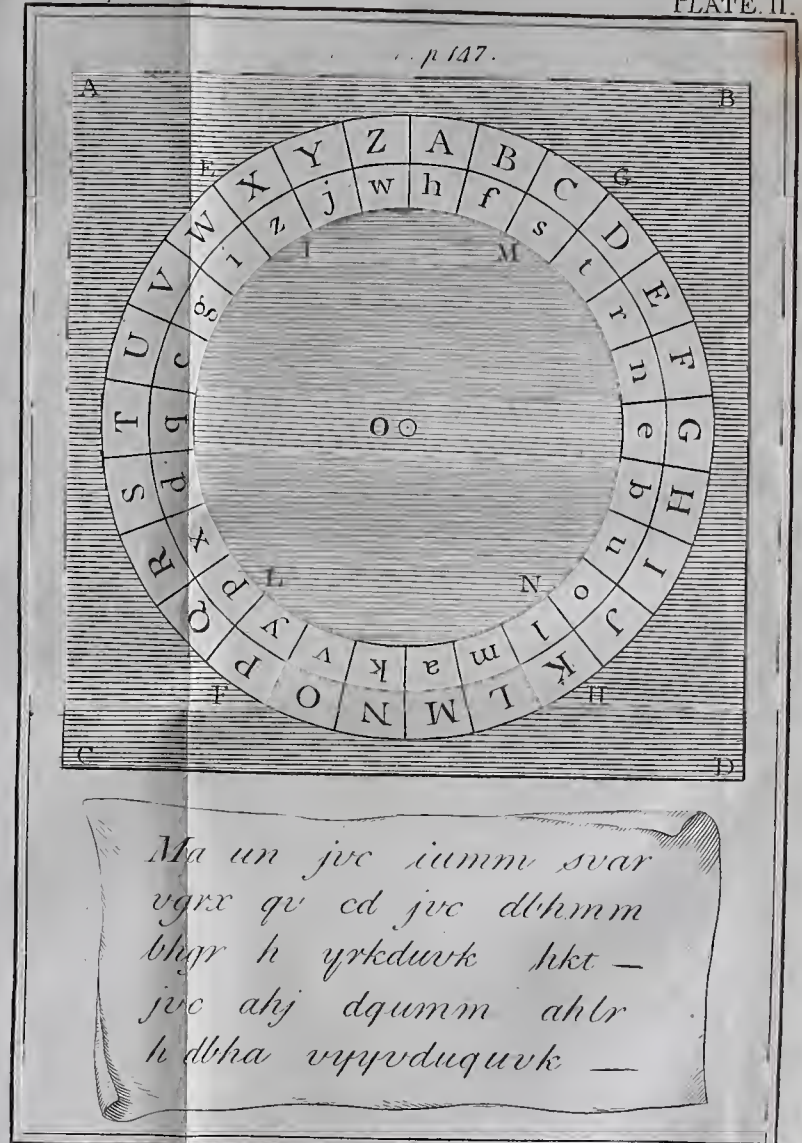 PLATE. II.
p 147.
A B
E G
A B C D E F G H I J K L M N O P Q R S T U V W X Y Z
h f s t r n e b u o l m a k v y p x d q c g i z j w
I M
O
L N
F H
C D
Ma un jvc iumm svar
vgrx qv cd jvc dbhmm
bhgr h yrkduvk hkt —
jvc ahj dqumm ahlr
h dbha vyyvduquvk —